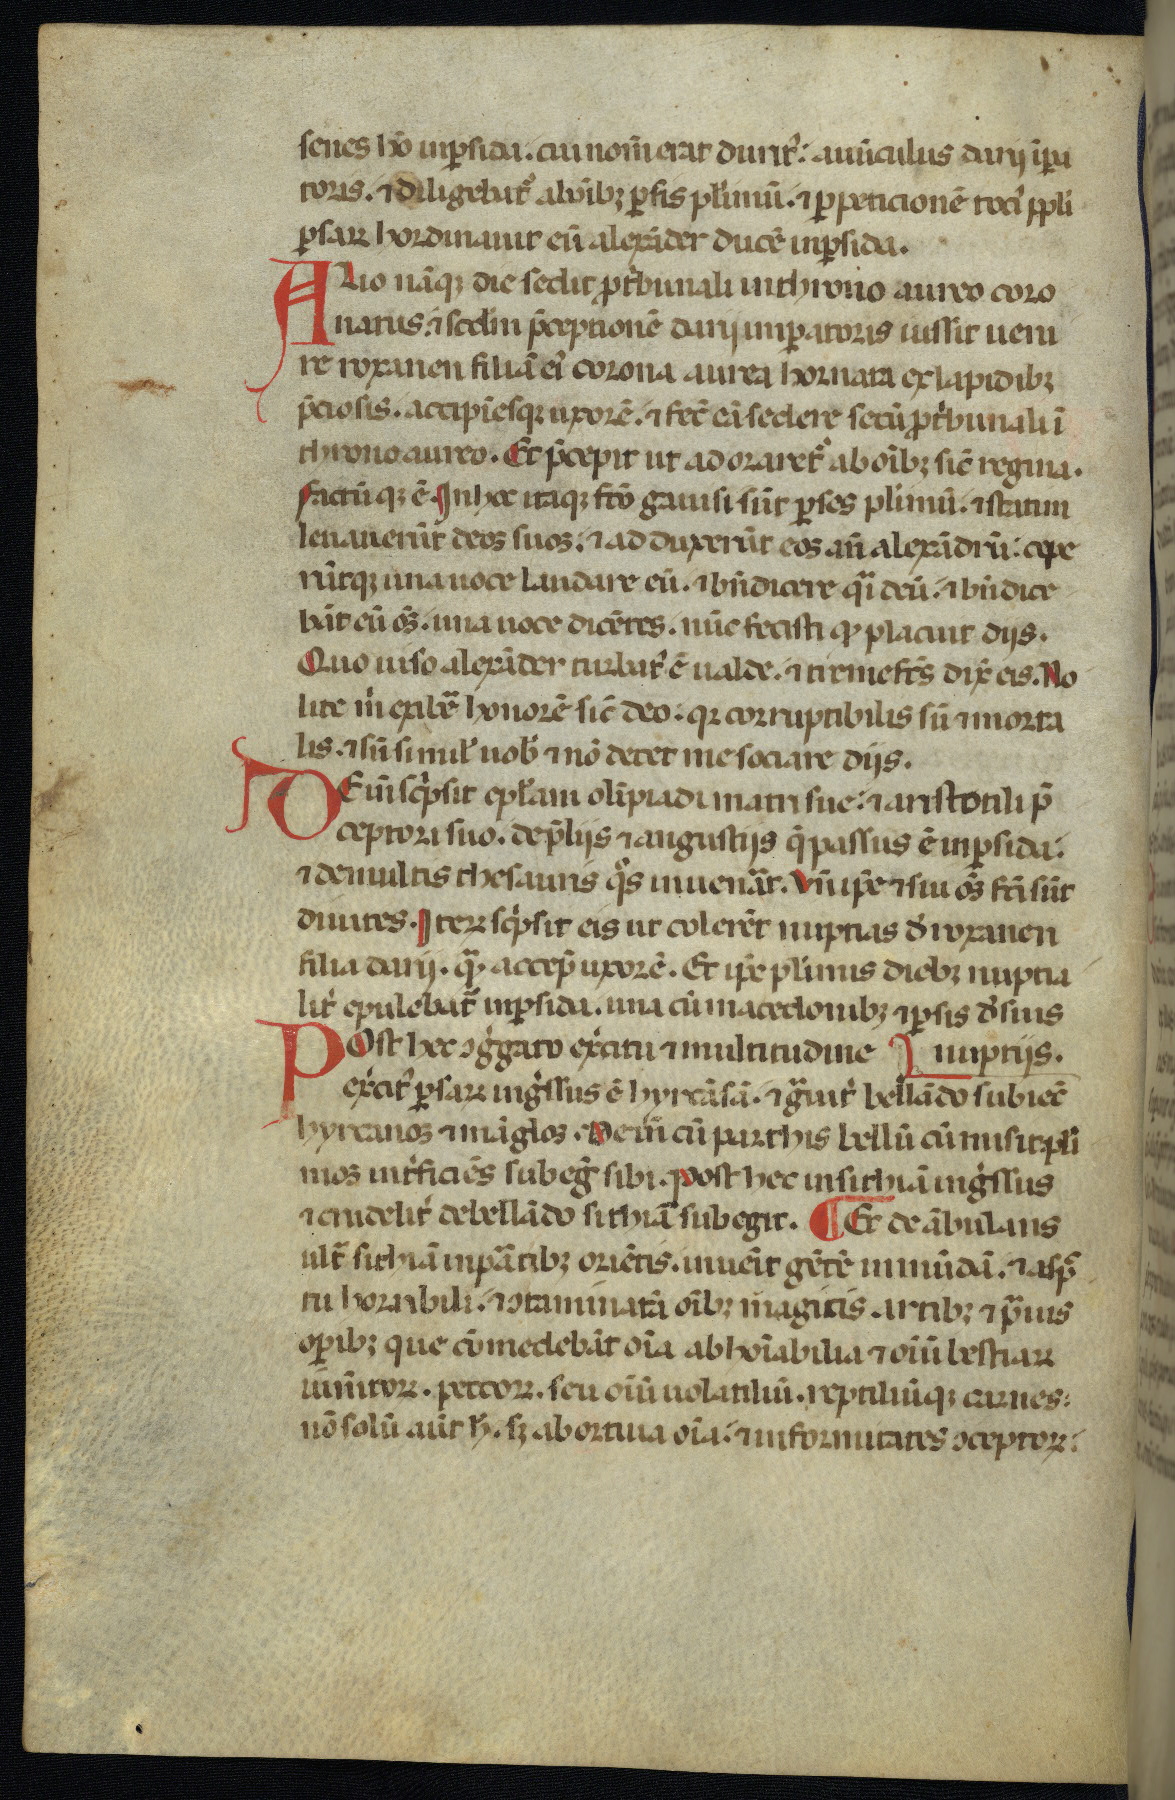 senes hō in ꝑsida. cui nom̄ erat durit᷒. auūculus darij īꝑa
toris. ⁊ diligebat᷒ ab oīb; ꝑsis pl'imū. ⁊ ꝑ peticionē toci᷒ ppli
ꝑsaꝝ hordinauit eū alexāder ducē in ꝑsida.
Alio nāq; die sedit ꝓ tͥbunali in throno aureo coro
natus. ⁊ scd'm p̄ceptionē darij inꝑatoris iussit ueni
re roxanen filiā ei᷒ corona aurea hornata ex lapidib;
p̄ciosis. accipiēsq; uxorē. ⁊ fec̄ eā sedere secū ꝓ tͥbunali ī
throno aureo. Et p̄cepit ut adoraret᷒ ab oīb; sic̄ regina.
factūq; ē. In hec itaq; fcō gauisi sūt ꝑses pl'imū. ⁊ statim
leuauerūt deos suos. ⁊ adduxerūt eos an̄ alexādrū. cepe
rūtq; una uoce laudare eū. ⁊ bn̄dicere qͣi deū. ⁊ bn̄dice
bāt eū oēs. una uoce dicētes. nūc fecisti qͩ placuit dijs.
Quo uiso alexāder turbat᷒ ē ualde. ⁊ timefcūs dix̄ eis. No
lite m̄ exibͤe honorē sic̄ deo. qꝛ corruptibilis sū ⁊ morta
lis. ⁊ sū simil' uob᷒ ⁊ nō decet me sociare dijs.
DEin̄ scͥpsit epl'am olīpiadi matri sue. ⁊ aristotili p̄
ceptori suo. de p̄lijs ⁊ angustijs qͣ passus ē in ꝑsida.
⁊ de multis thesauris qͦs inuenāt. Vn̄ ip̄e ⁊ sui oēs fcī sūt
diuites. Iteꝝ scͥpsit eis ut colerēt nuptias d' roxanen
filia darij. qͣ accep̄ uxorē. Et ip̄e pl'imis dieb; nuptia
lit᷒ epulebat᷒ in ꝑsida. una cū macedonib; ⁊ ꝑsis d' suis
POst hec ꝯgͤgato ex̄citu ⁊ multitudine nuptijs.
ex̄cit᷒ ꝑsaꝝ ingͤssus ē hyrcāiā. ⁊ gͣuit᷒ bellādo subiec̄
hyrcanos ⁊ māglos. Dein̄ cū parthis bellū cū misit. pl'i
mos int᷒ficiēs subeg̅ sibi. Post hec in sithiā ingͤssus
⁊ crudelit᷒ debellādo sithiā subegit. ¶ Et deābulans
ultͣ sithiā in pͣtib; oriētis. inuēit gētē inmūdā. ⁊ aspͤ
tu horribili. ⁊ ꝯtaminatā oīb; magicis artib; ⁊ pͣuis
oꝑib; que cōmedebāt oīa abhoīabilia ⁊ oīū bestiaꝝ
iumtoꝝ. peccoꝝ. seu oīū uolatiliū. reptiliūq; carnes.
nō solū aūt h̄. s; abortiua oīa. ⁊ informitates ꝯceptoꝝ.